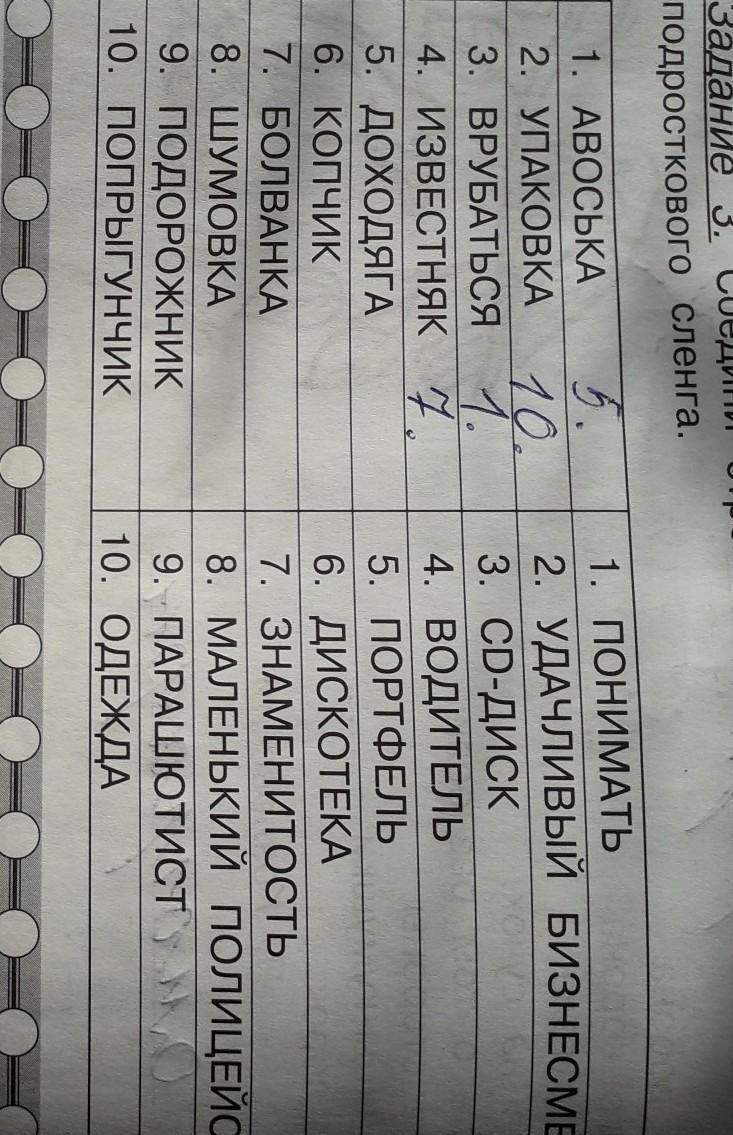 Задание 3. Соедини
подросткового сленга.
1. АВОСЬКА 5. 1. ПОНИМАТЬ
2. УПАКОВКА 10. 2. УДАЧЛИВЫЙ БИЗНЕСМЕ
3. ВРУБАТЬСЯ 1. 3. CD-ДИСК
4. ИЗВЕСТНЯК 7. 4. ВОДИТЕЛЬ
5. ДОХОДЯГА 5. ПОРТФЕЛЬ
6. КОПЧИК 6. ДИСКОТЕКА
7. БОЛВАНКА 7. ЗНАМЕНИТОСТЬ
8. ШУМОВКА 8. МАЛЕНЬКИЙ ПОЛИЦЕЙС
9. ПОДОРОЖНИК 9. ПАРАШЮТИСТ
10. ПОПРЫГУНЧИК 10. ОДЕЖДА